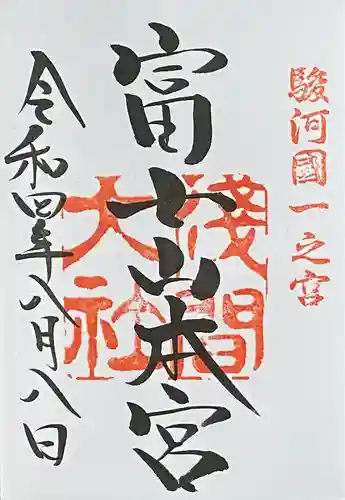 駿河國一之宮
富士山本宮
淺間
大社
令和四年八月八日